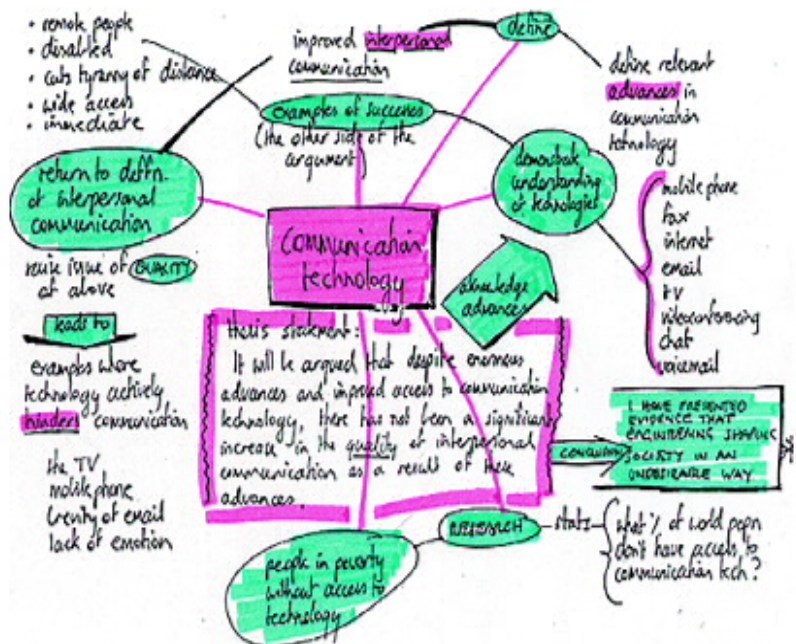 • remote people
• disabled
• cuts tyranny of distance
• wide access
• immediate
improved interpersonal
communication
define
define relevant
advances in
communication
technology
examples of success
(the other side of the
argument)
demonstrate
understanding
of technologies
mobile phone
fax
internet
email
TV
videoconferencing
chat
voicemail
return to defn.
of interpersonal
communication
issue of QUALITY
at above
leads to
examples where
technology actively
hinders communication
the TV
mobile phone
brevity of email
lack of emotion
communication
technology
aknowledge
advances
thesis statement:
It will be argued that despite enormous
advances and improved access to communication
technology, there has not been a significant
increase in the quality of interpersonal
communication as a result of these
advances.
CONCLUSION
I HAVE PRESENTED
EVIDENCE THAT
ENGINEERING SHAPING
SOCIETY IN AN
UNDESIRABLE WAY
RESEARCH
stats
what % of world popn
don't have access to
communication tech?
people in poverty
without access to
technology